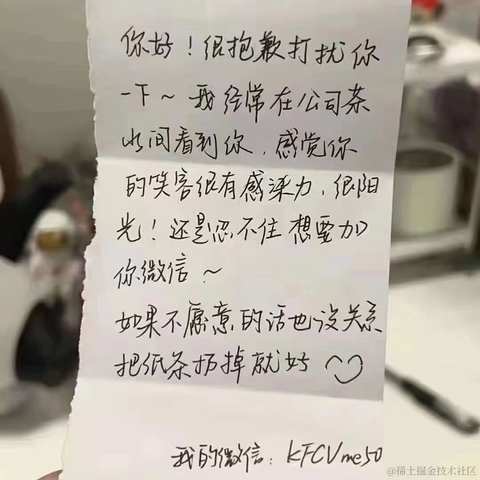 你好！很抱歉打扰你
一下～我经常在公司茶
水间看到你，感觉你
的笑容很有感染力，很阳
光！还是忍不住想要加
你微信～
如果不愿意的话也没关系
把纸条扔掉就好
我的微信：KFCVme50
@稀土掘金技术社区